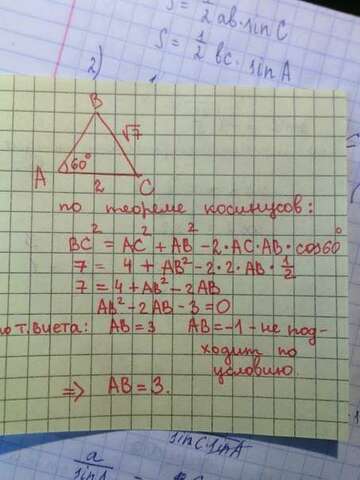 S = 1/2 ab·sin C
S = 1/2 bc · sin A
2)
B
√7
A 60° C
2
по теореме косинусов:
BC² = AC² + AB² − 2·AC·AB·cos60°
7 = 4 + AB² − 2·2·AB·1/2
7 = 4 + AB² − 2AB
AB² − 2AB − 3 = 0
по т. Виета: AB = 3 AB = −1 − не под-
ходит по
условию.
⇒ AB = 3.
sin C · sin A
a/sin A